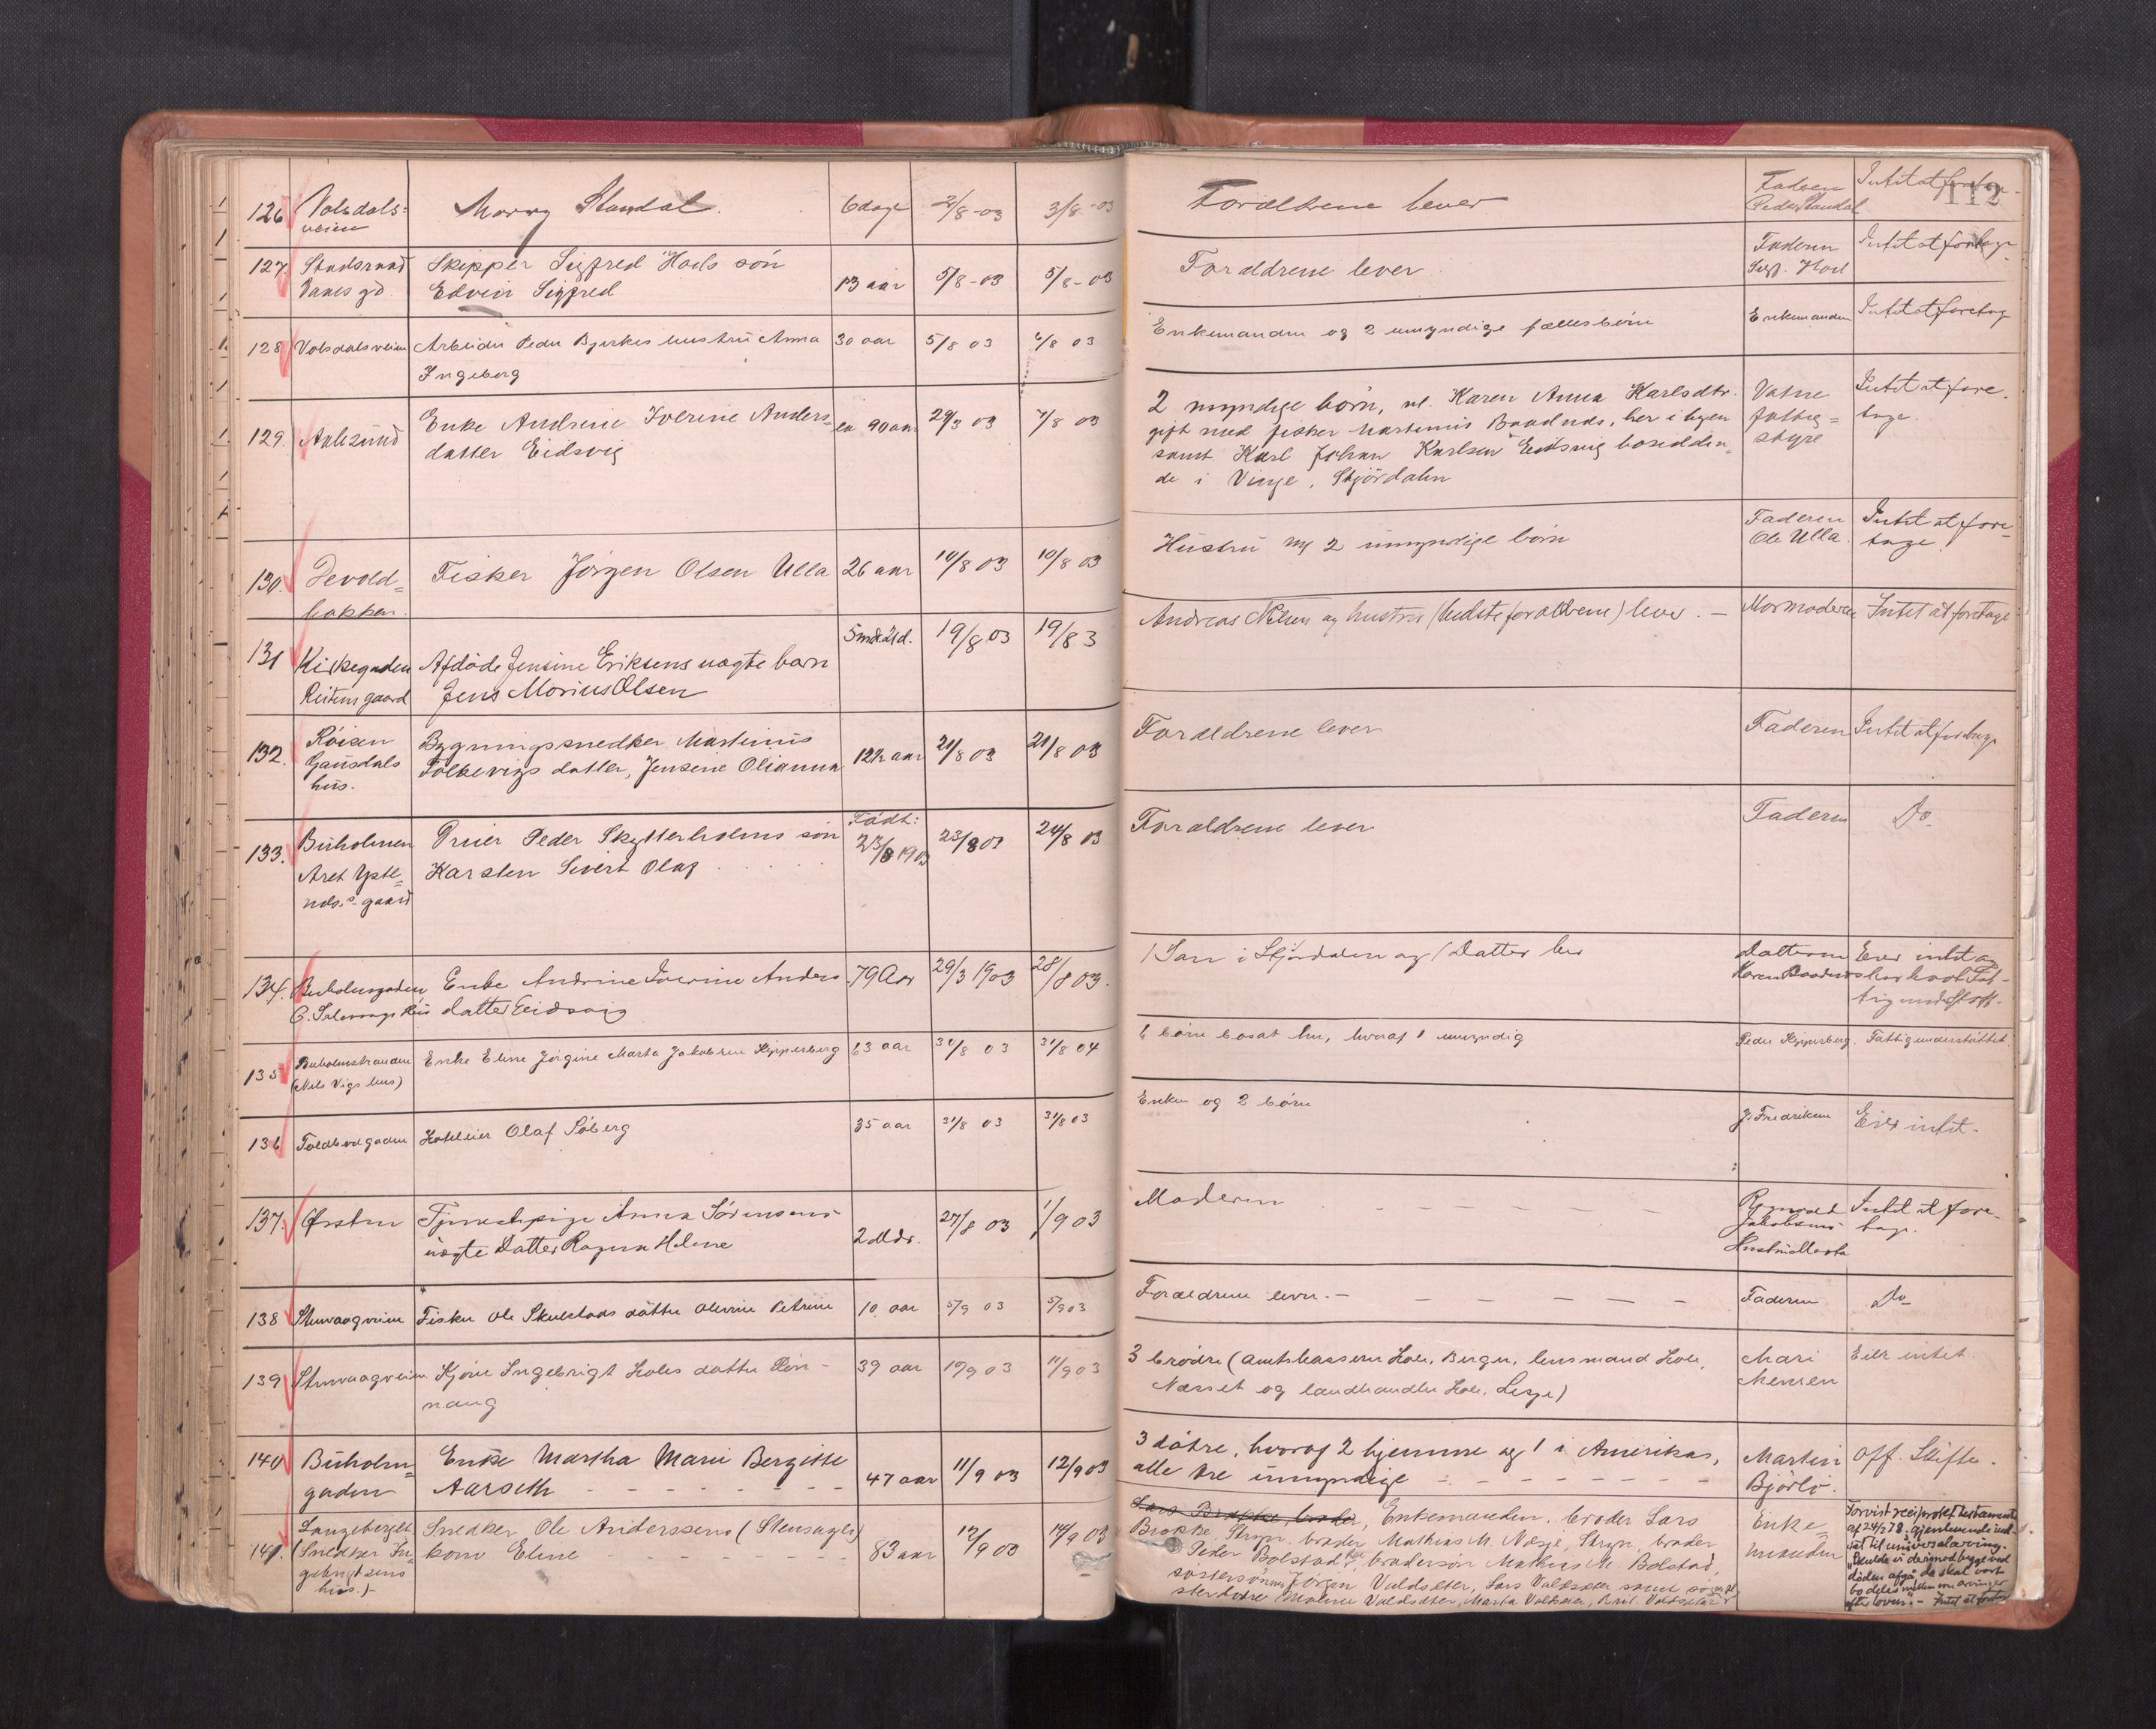 112
126 Volsdals=
veien
Standal.
6 dage
2/8-03
3/8-03
Forældrene lever
Faderen
Peder Standal
Intet at foretage
127. Stadsraad
Skipper Sigfred Hods sön
Edvin Sigfred
13 aar
5/8-03
5/8-03
Forældrene lever
Faderen
Sigf. Hod
Intet at foretage
128 Volsdalsveien
Arbeider Peder Bjerkes hustru Anna
Ingeborg
30 aar
5/8 03
6/8 03
Enkemanden og 2 umyndige fællesbörn
Enkemanden
Intet at foretage
129. Aalesund
Enke Andrine Iverine Anders-
datter Eidsvig
ca 90 aar
29/3 03
7/8 03
2 myndige börn, nl. Karen Anna Karlsdtr.
gift med fisker Martinus Baadnds, her i byen
samt Karl Johan Karlsen Eidsvig boendden=
de i Vinje, Stjördalen
Vatne
fattig=
styre
Intet at fore-
tage.
130. Devold=
bakken.
Fisker Jörgen Olsen Ulla
26 aar
10/8 03
10/8 03
Hustru og 2 umyndige börn
Faderen
Ole Ulla.
Intet at fore-
tage.
131 Kirkegaden
Reitens gaard
Afdöde Jensine Eriksens uægte barn
Jens Marius Olsen
5 mdr. 21 d.
19/8 03
19/8 3
Andreas Nilsen og hustru (bedsteforældrene) lever. -
Mormoderen
Intet at foretage
132. Röisen
Gausdals
hus.
Bygningssnedker Martinus
Solbevigs datter, Jensene Olianna
12½ aar
21/8 03
21/8 03
Forældrene lever
Faderen
Intet at foretage
133. Buholmen
Aret Yste=
nds.s gaard
Driier Peder Skytterholms sön
Karsten Sivert Olaf
Födt:
23/8 1903
23/8 03
24/8 03
Forældrene lever
Faderen
Do
134. Buholmgaden
hus
Enke Andrine Iverine Anders
datter Eidsvig
79 Aar
29/3 1903
28/8 03.
1 Søn i Stjördalen og 1 Datter her
Datteren
Karen Baadnds
Eier intet og
har havt Fat-
tigunderstött.
135 Buholmstranden
(Nils Vigs hus)
Enke Eline Jörgine Marta Jakobine Kipperberg
63 aar
30/8 03
31/8 04
6 börn bosat her, hvoraf 1 umyndig
Peder Kipperberg.
Fattigunderstöttet.
136 Toldbodgaden
Hoteleier Olaf Söberg
35 aar
31/8 03
31/8 03
Enken og 2 börn
J. Fredriksen
Eier intet.
137. Ørsten
Tjenestepige Anna Sörensens
uægte Datter Ragna Helene
2 Mdr.
27/8 03
1/9 03
Moderen
Jakobsens
Hustru Marta
Intet at fore-
tage.
138 Stenvaagveien
Fisker Ole Skulstads datter Olivine Petrine
10 aar
5/9 03
5/9 03
Forældrene lever. -
Faderen
Do
139 Stenvaagveien
Kjöre Ingebrigt Holes datter Rön-
naug
39 aar
10/9 03
11/9 03
3 brödre (amtskasserer Hole, Bergen, lensmand Hole,
Næsset og landhandler Hole, Lesje)
Mari
Mensen
Eier intet.
140 Buholm=
gaden
Enke Martha Marie Bergitte
Aarseth
47 aar
11/9 03
12/9 03
3 dötre, hvoraf 2 hjemme og 1 i Amerika,
alle tre umyndige
Martin
Björlo.
Off. Skifte.
141. Langebergets
(Snedker In
gebrigtsens
hus.)
Snedker Ole Anderssens (Stensager)
kone Eline
83 aar
12/9 03
14/9 03
Lars Brække, broder, Enkemanden, broder Lars
Brække, Stryn, broder Mathias M. Næsje, Stryn, broder
Peder Bolstad, brodersön Mathias M. Bolstad,
söstersönner Jörgen Valdsæter, Lars Valdsæter samt sö-
sterdötre Malene Valdsæter, Marta Valdsæter, Brit. Valdsæter
Enke=
manden
Forvist reciprokt testamente
af 24/2 78. gjenlevende ind-
sat til universalarving.
"Skulde vi derimod begge ved
döden afgå da skal vort
bo deles mellem vore arvinger
efter loven". - Intet at foretage